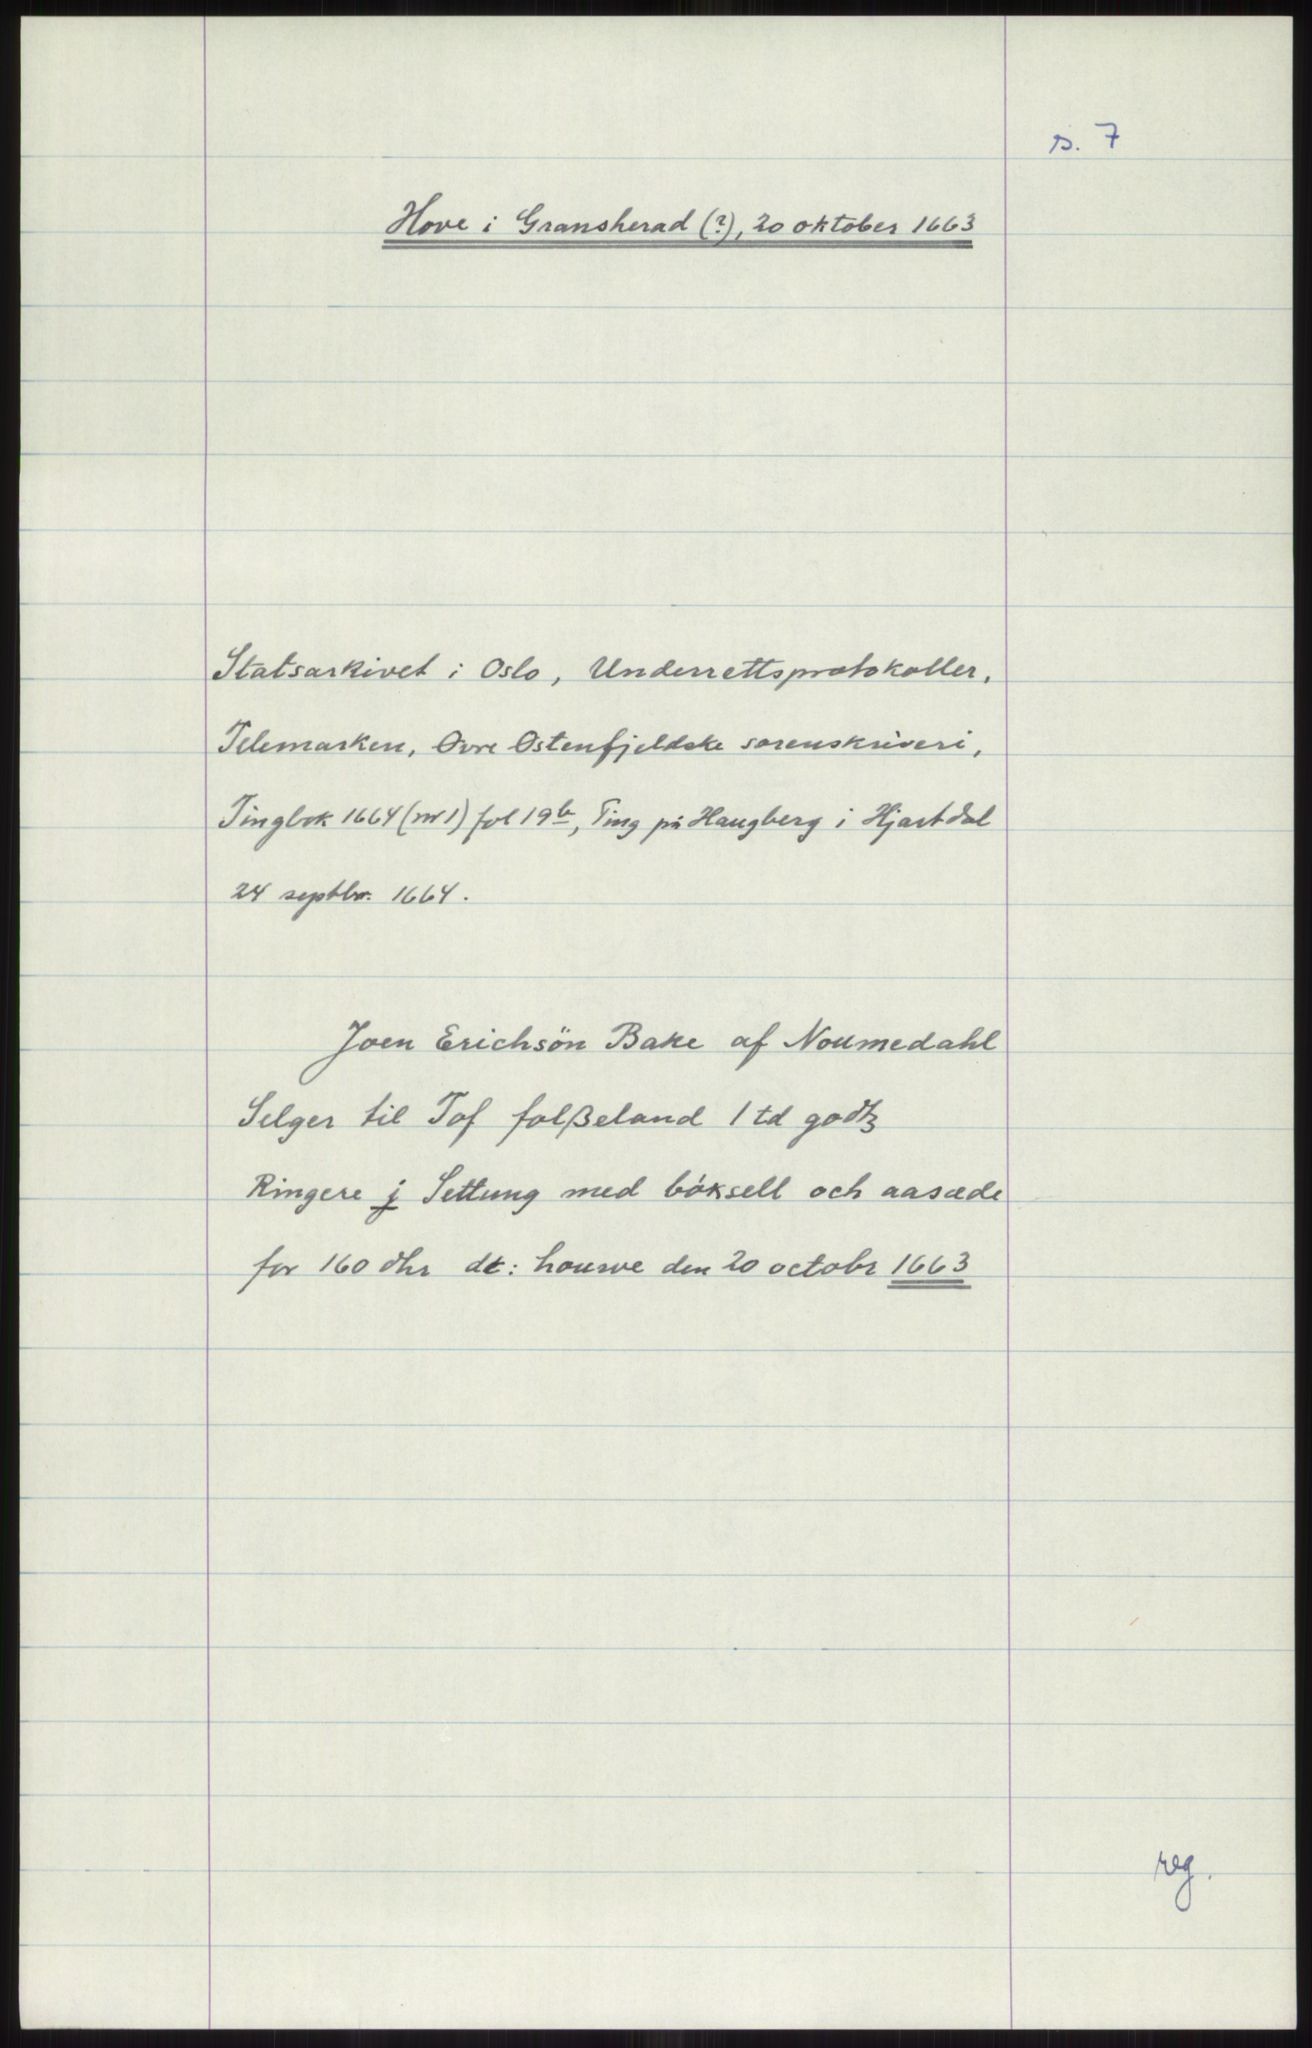 s. 7
Hove i Gransherad (?), 20 oktober 1663
Statsarkivet i Oslo, Underrettsprotokoller,
Telemarken, Øvre Østenfjeldske sorenskriveri,
Tingbok 1664 (nr 1) fol 19b, Ting på Haugberg i Hjartdal
24 septbr. 1664.
Joen Erichsön Bake af Noumedahl
Selger til Tof folßeland 1 td godtz
Ringere j Settung med böksell och aasæde
for 160 dhr dt: houwe den 20 octobr 1663
reg.